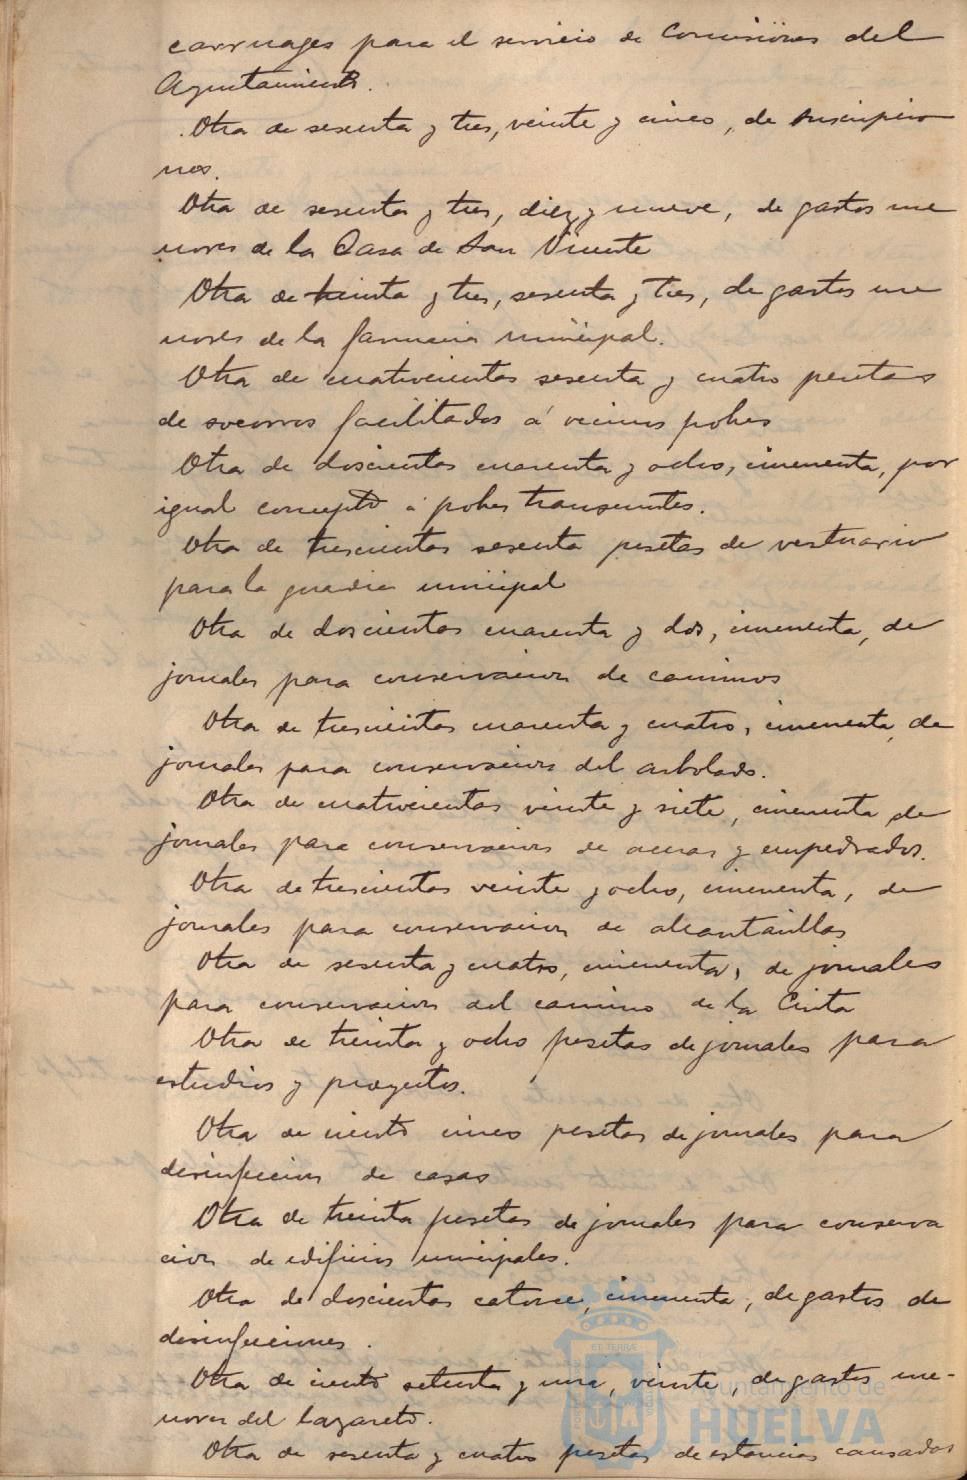 carruages para el servicio de Comisiones del
Ayuntamiento.
Otra de sesenta y tres, veinte y cinco, de suscripcio
nes.
Otra de sesenta y tres, diez y nueve, de gastos me
nores de la Casa de San Vicente
Otra de treinta y tres, sesenta y tres, de gastos me
nores de la farmacia municipal.
Otra de cuatrocientas sesenta y cuatro pesetas
de socorros facilitados á vecinos pobres
Otra de doscientas cuarenta y ocho, cincuenta, por
igual concepto á pobres transeuntes.
Otra de trescientas sesenta pesetas de vestuario
para la guardia municipal
Otra de doscientas cuarenta y dos, cincuenta, de
jornales para conservacion de caminos
Otra de trescientas cuarenta y cuatro, cincuenta, de
jornales para conservacion del arbolado.
Otra de cuatrocientas veinte y siete, cincuenta de
jornales para conservacion de aceras y empedrados.
Otra de trescientas veinte y ocho, cincuenta, de
jornales para conservacion de alcantarillas
Otra de sesenta y cuatro, cincuenta, de jornales
para conservacion del camino de la Cinta
Otra de treinta y ocho pesetas de jornales para
estudios y proyectos.
Otra de ciento cinco pesetas de jornales para
desinfeccion de casas
Otra de treinta pesetas de jornales para conserva
cion de edificios municipales.
Otra de doscientas catorce, cincuenta, de gastos de
desinfecciones.
Otra de ciento setenta y una, veinte, de gastos me-
nores del lazareto.
Otra de sesenta y cuatro pesetas de estancias causadas
Ayuntamiento de
HUELVA